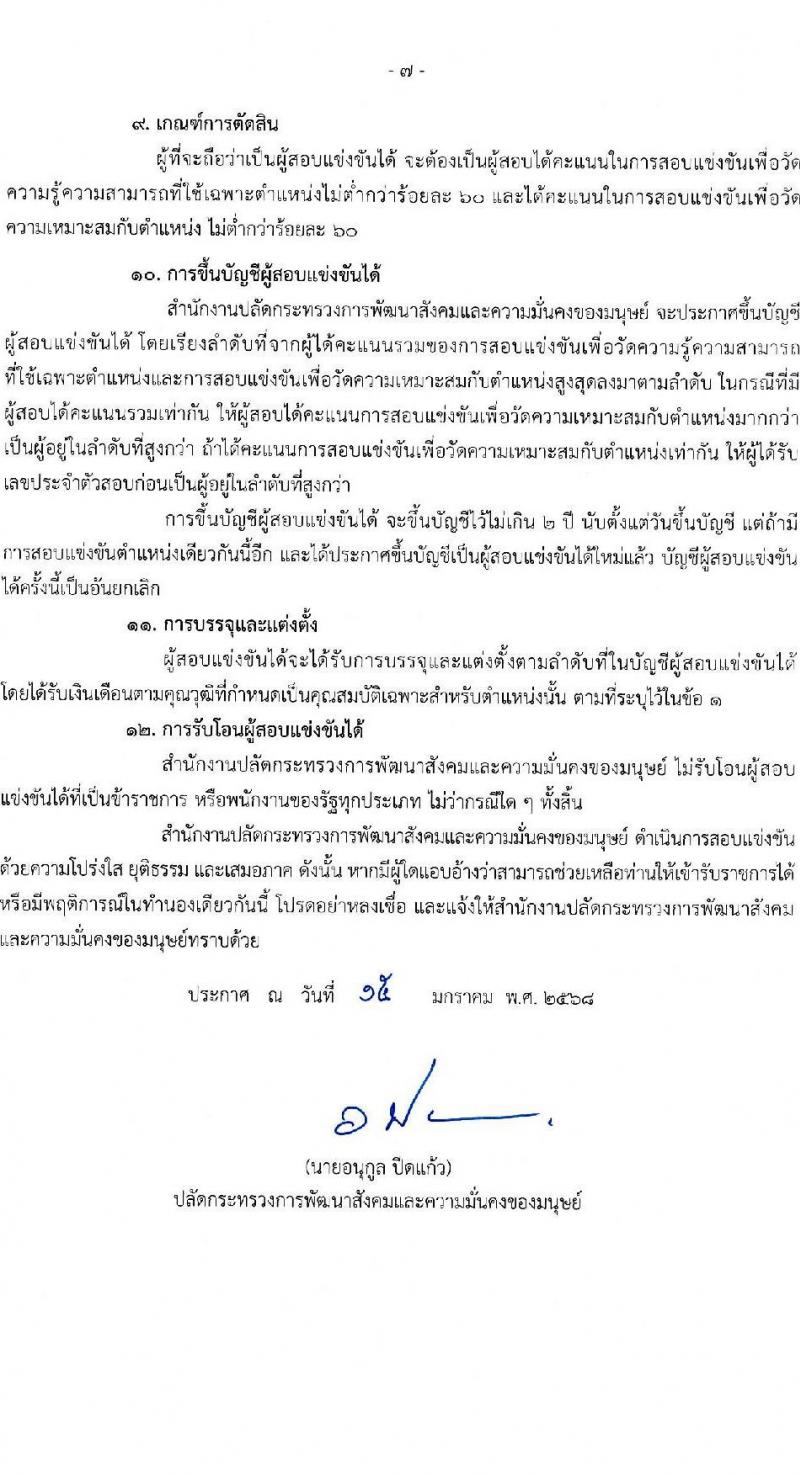 - ๗ -
๙. เกณฑ์การตัดสิน
ผู้ที่จะถือว่าเป็นผู้สอบแข่งขันได้ จะต้องเป็นผู้สอบได้คะแนนในการสอบแข่งขันเพื่อวัด
ความรู้ความสามารถที่ใช้เฉพาะตำแหน่งไม่ต่ำกว่าร้อยละ ๖๐ และได้คะแนนในการสอบแข่งขันเพื่อวัด
ความเหมาะสมกับตำแหน่ง ไม่ต่ำกว่าร้อยละ ๖๐
๑๐. การขึ้นบัญชีผู้สอบแข่งขันได้
สำนักงานปลัดกระทรวงการพัฒนาสังคมและความมั่นคงของมนุษย์ จะประกาศขึ้นบัญชี
ผู้สอบแข่งขันได้ โดยเรียงลำดับที่จากผู้ได้คะแนนรวมของการสอบแข่งขันเพื่อวัดความรู้ความสามารถ
ที่ใช้เฉพาะตำแหน่งและการสอบแข่งขันเพื่อวัดความเหมาะสมกับตำแหน่งสูงสุดลงมาตามลำดับ ในกรณีที่มี
ผู้สอบได้คะแนนรวมเท่ากัน ให้ผู้สอบได้คะแนนการสอบแข่งขันเพื่อวัดความเหมาะสมกับตำแหน่งมากกว่า
เป็นผู้อยู่ในลำดับที่สูงกว่า ถ้าได้คะแนนการสอบแข่งขันเพื่อวัดความเหมาะสมกับตำแหน่งเท่ากัน ให้ผู้ได้รับ
เลขประจำตัวสอบก่อนเป็นผู้อยู่ในลำดับที่สูงกว่า
การขึ้นบัญชีผู้สอบแข่งขันได้ จะขึ้นบัญชีไว้ไม่เกิน ๒ ปี นับตั้งแต่วันขึ้นบัญชี แต่ถ้ามี
การสอบแข่งขันตำแหน่งเดียวกันนี้อีก และได้ประกาศขึ้นบัญชีเป็นผู้สอบแข่งขันได้ใหม่แล้ว บัญชีผู้สอบแข่งขัน
ได้ครั้งนี้เป็นอันยกเลิก
๑๑. การบรรจุและแต่งตั้ง
ผู้สอบแข่งขันได้จะได้รับการบรรจุและแต่งตั้งตามลำดับที่ในบัญชีผู้สอบแข่งขันได้
โดยได้รับเงินเดือนตามคุณวุฒิที่กำหนดเป็นคุณสมบัติเฉพาะสำหรับตำแหน่งนั้น ตามที่ระบุไว้ในข้อ ๑
๑๒. การรับโอนผู้สอบแข่งขันได้
สำนักงานปลัดกระทรวงการพัฒนาสังคมและความมั่นคงของมนุษย์ ไม่รับโอนผู้สอบ
แข่งขันได้ที่เป็นข้าราชการ หรือพนักงานของรัฐทุกประเภท ไม่ว่ากรณีใด ๆ ทั้งสิ้น
สำนักงานปลัดกระทรวงการพัฒนาสังคมและความมั่นคงของมนุษย์ ดำเนินการสอบแข่งขัน
ด้วยความโปร่งใส ยุติธรรม และเสมอภาค ดังนั้น หากมีผู้ใดแอบอ้างว่าสามารถช่วยเหลือท่านให้เข้ารับราชการได้
หรือมีพฤติการณ์ในทำนองเดียวกันนี้ โปรดอย่าหลงเชื่อ และแจ้งให้สำนักงานปลัดกระทรวงการพัฒนาสังคม
และความมั่นคงของมนุษย์ทราบด้วย
ประกาศ ณ วันที่ ๑๕ มกราคม พ.ศ. ๒๕๖๘
(นายอนุกูล ปีดแก้ว)
ปลัดกระทรวงการพัฒนาสังคมและความมั่นคงของมนุษย์